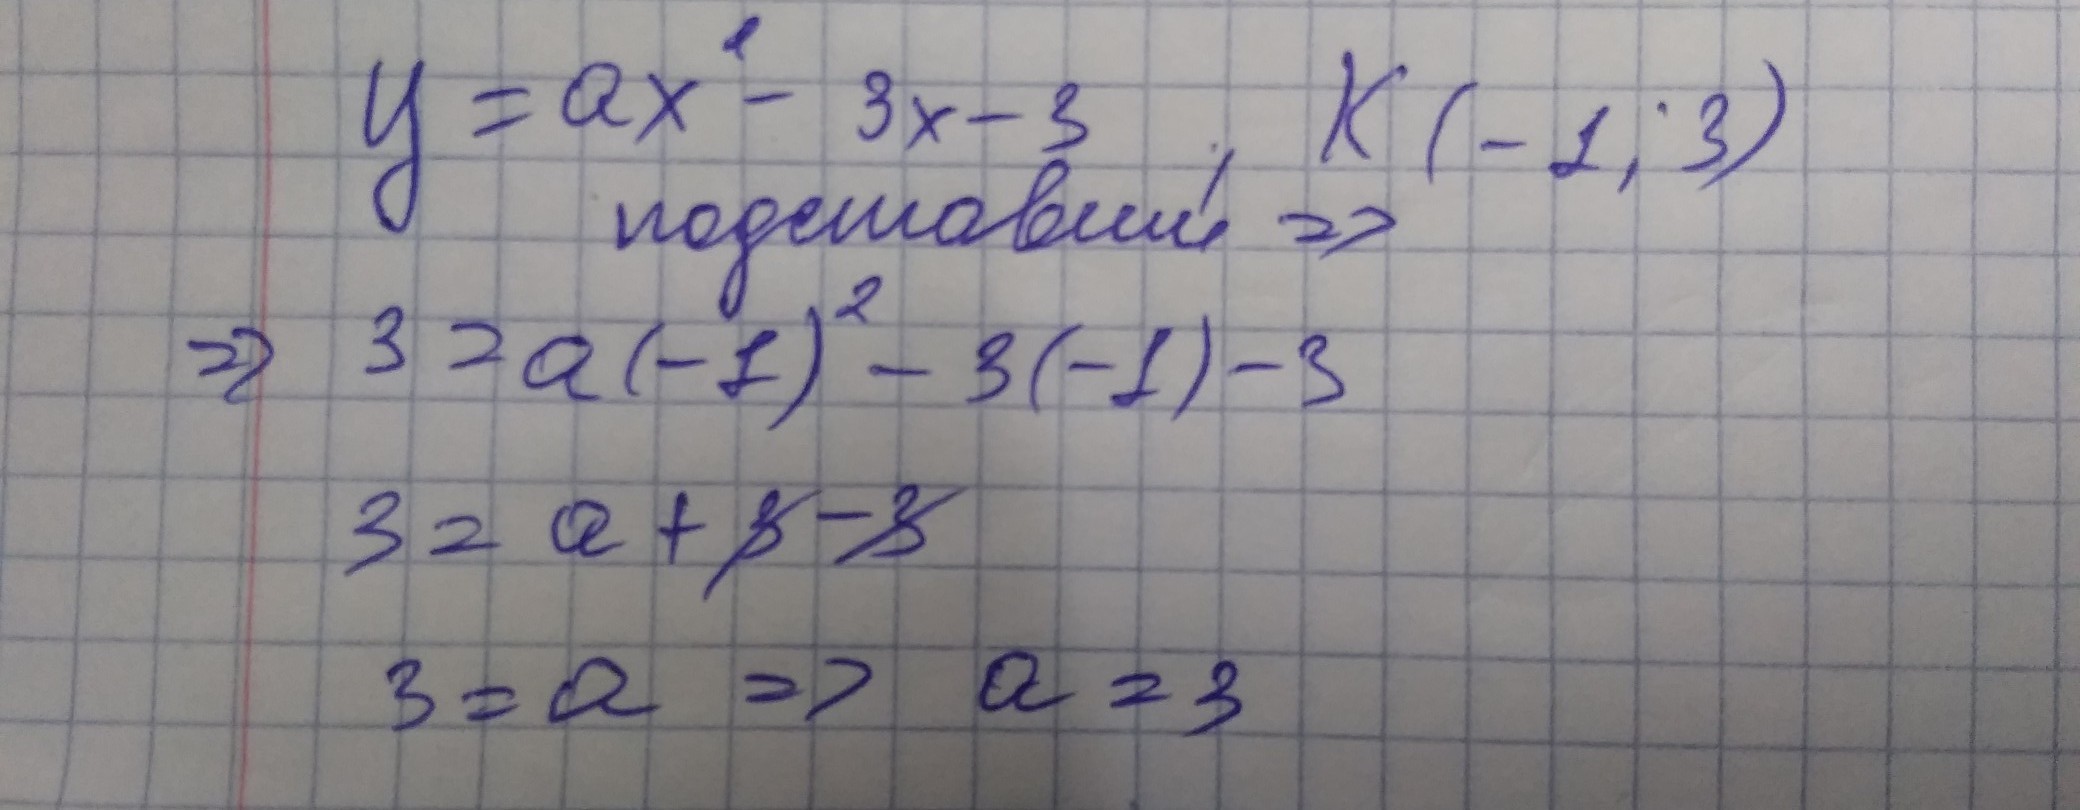 y = ax² - 3x - 3, K(-1; 3)
подставим =>
=> 3 = a(-1)² - 3(-1) - 3
3 = a + 3 - 3
3 = a => a = 3